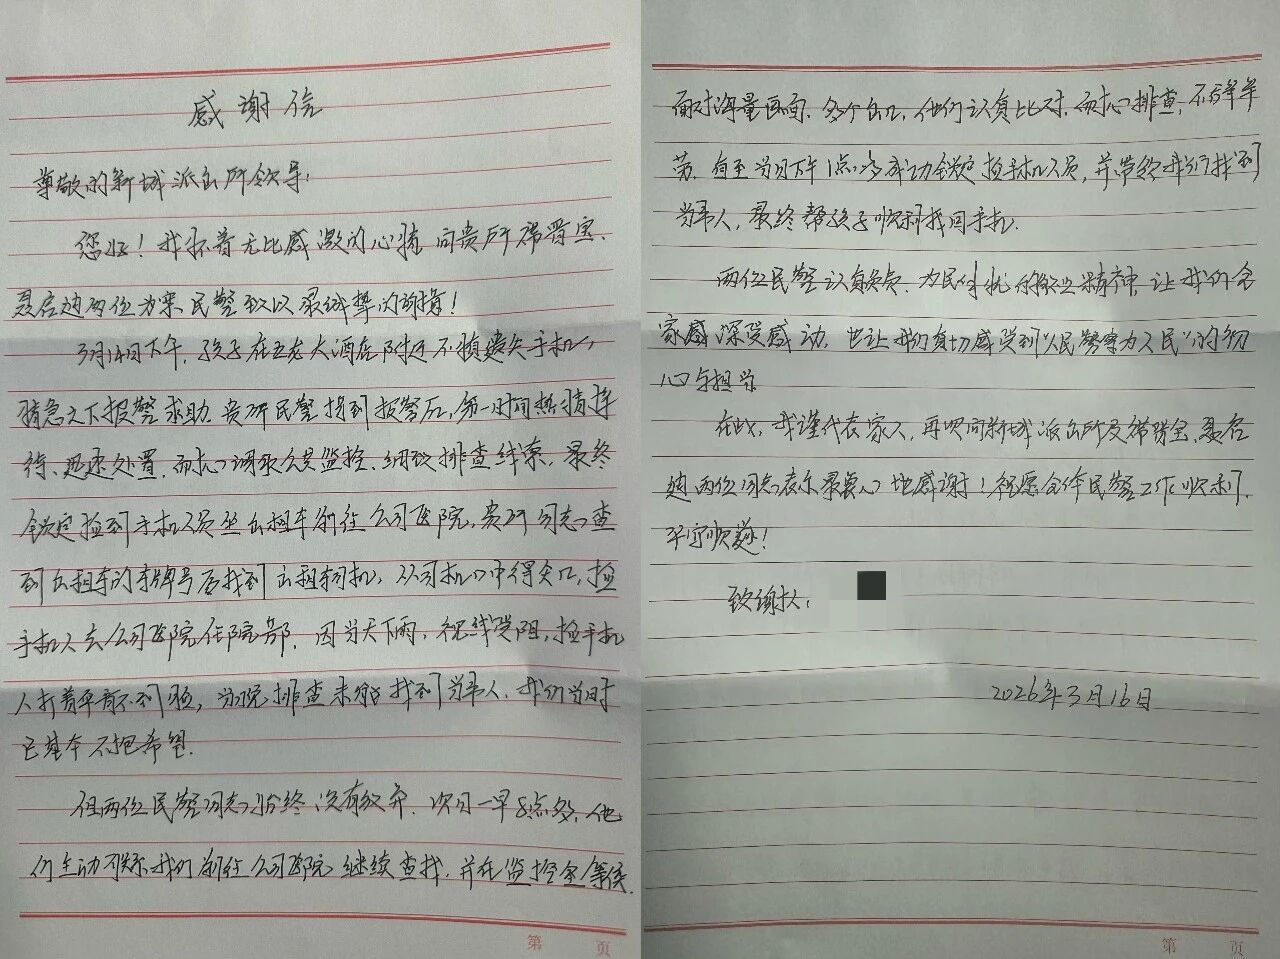 感谢信
尊敬的新城派出所领导：
您好！我怀着无比感激的心情，向贵所席晋宝、
聂启迪两位办案民警致以最诚挚的谢意！
3月14日下午，孩子在五龙大酒店附近不慎遗失手机，
情急之下报警求助。贵所民警接到报警后，第一时间热情接
待、迅速处置，耐心调取公共监控、细致排查线索，最终
锁定捡到手机人员坐出租车前往公司医院，贵所同志查
到出租车的车牌号后找到出租车司机，从司机口中得知，捡
手机人去公司医院住院部，因当天下雨，视线受阻，捡手机
人打着伞看不到脸，当晚排查未能找到当事人，我们当时
已基本不抱希望。
但两位民警同志始终没有放弃，次日一早8点多，他
们主动联系我们前往公司医院继续查找，并在监控室等候，
面对海量画面、多个出口，他们认真比对、耐心排查，不辞辛
苦，直至当日下午1点多成功锁定捡手机人员，并带领我们找到
当事人，最终帮孩子顺利找回手机。
两位民警认真负责、为民生忧的敬业精神，让我们全
家感深受感动，也让我们真切感受到“人民警察为人民”的初
心与担当。
在此，我谨代表家人，再次向新城派出所及席晋宝、聂启
迪两位同志表示最衷心地感谢！祝愿全体民警工作顺利、
平安顺遂！
致谢人：
2026年3月16日
第 页
第 页